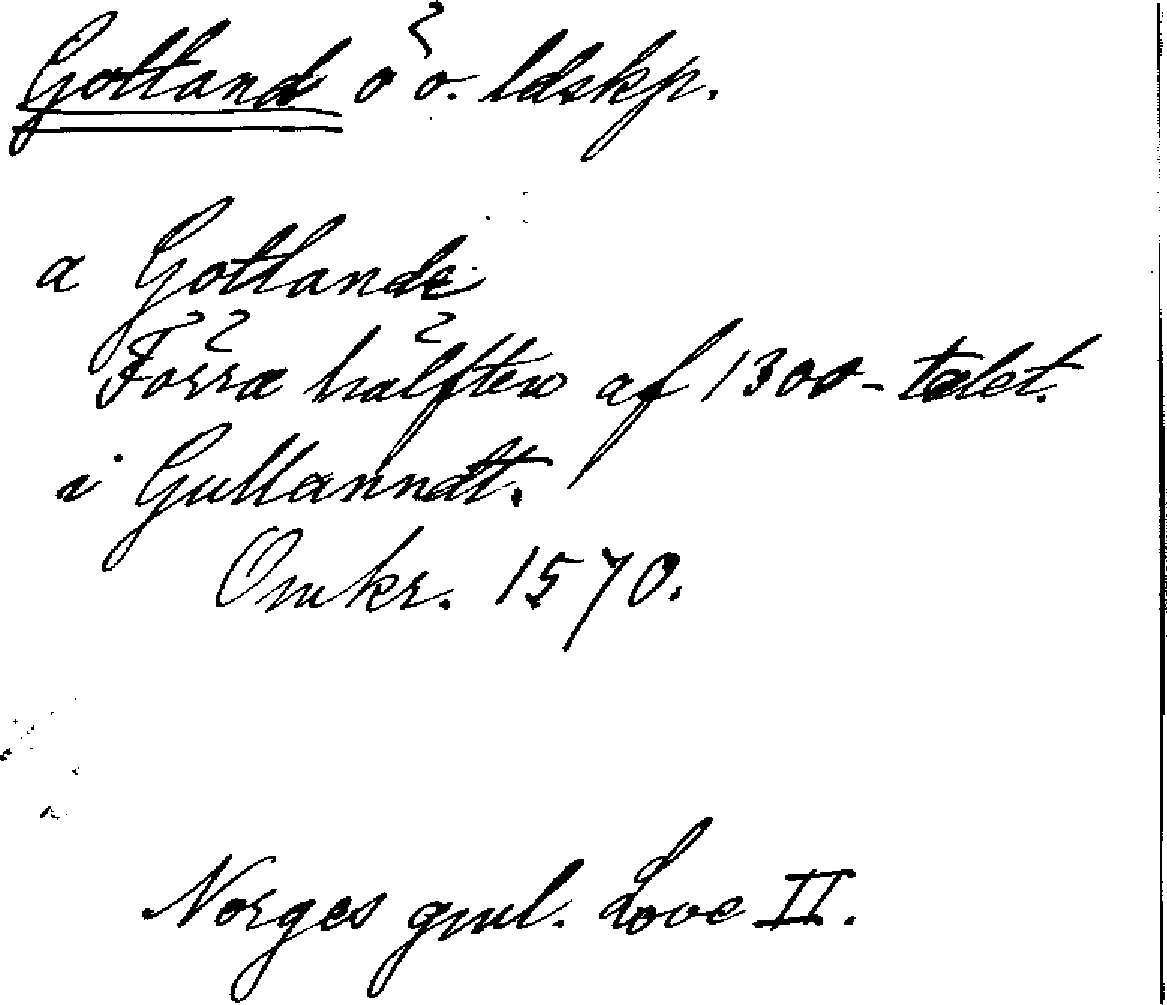 Gotland ö o. ldskp.
a Gotlande
Förra hälften af 1300-talet.
i Gullanndt.
Omkr. 1570.
Norges gml. Love II.